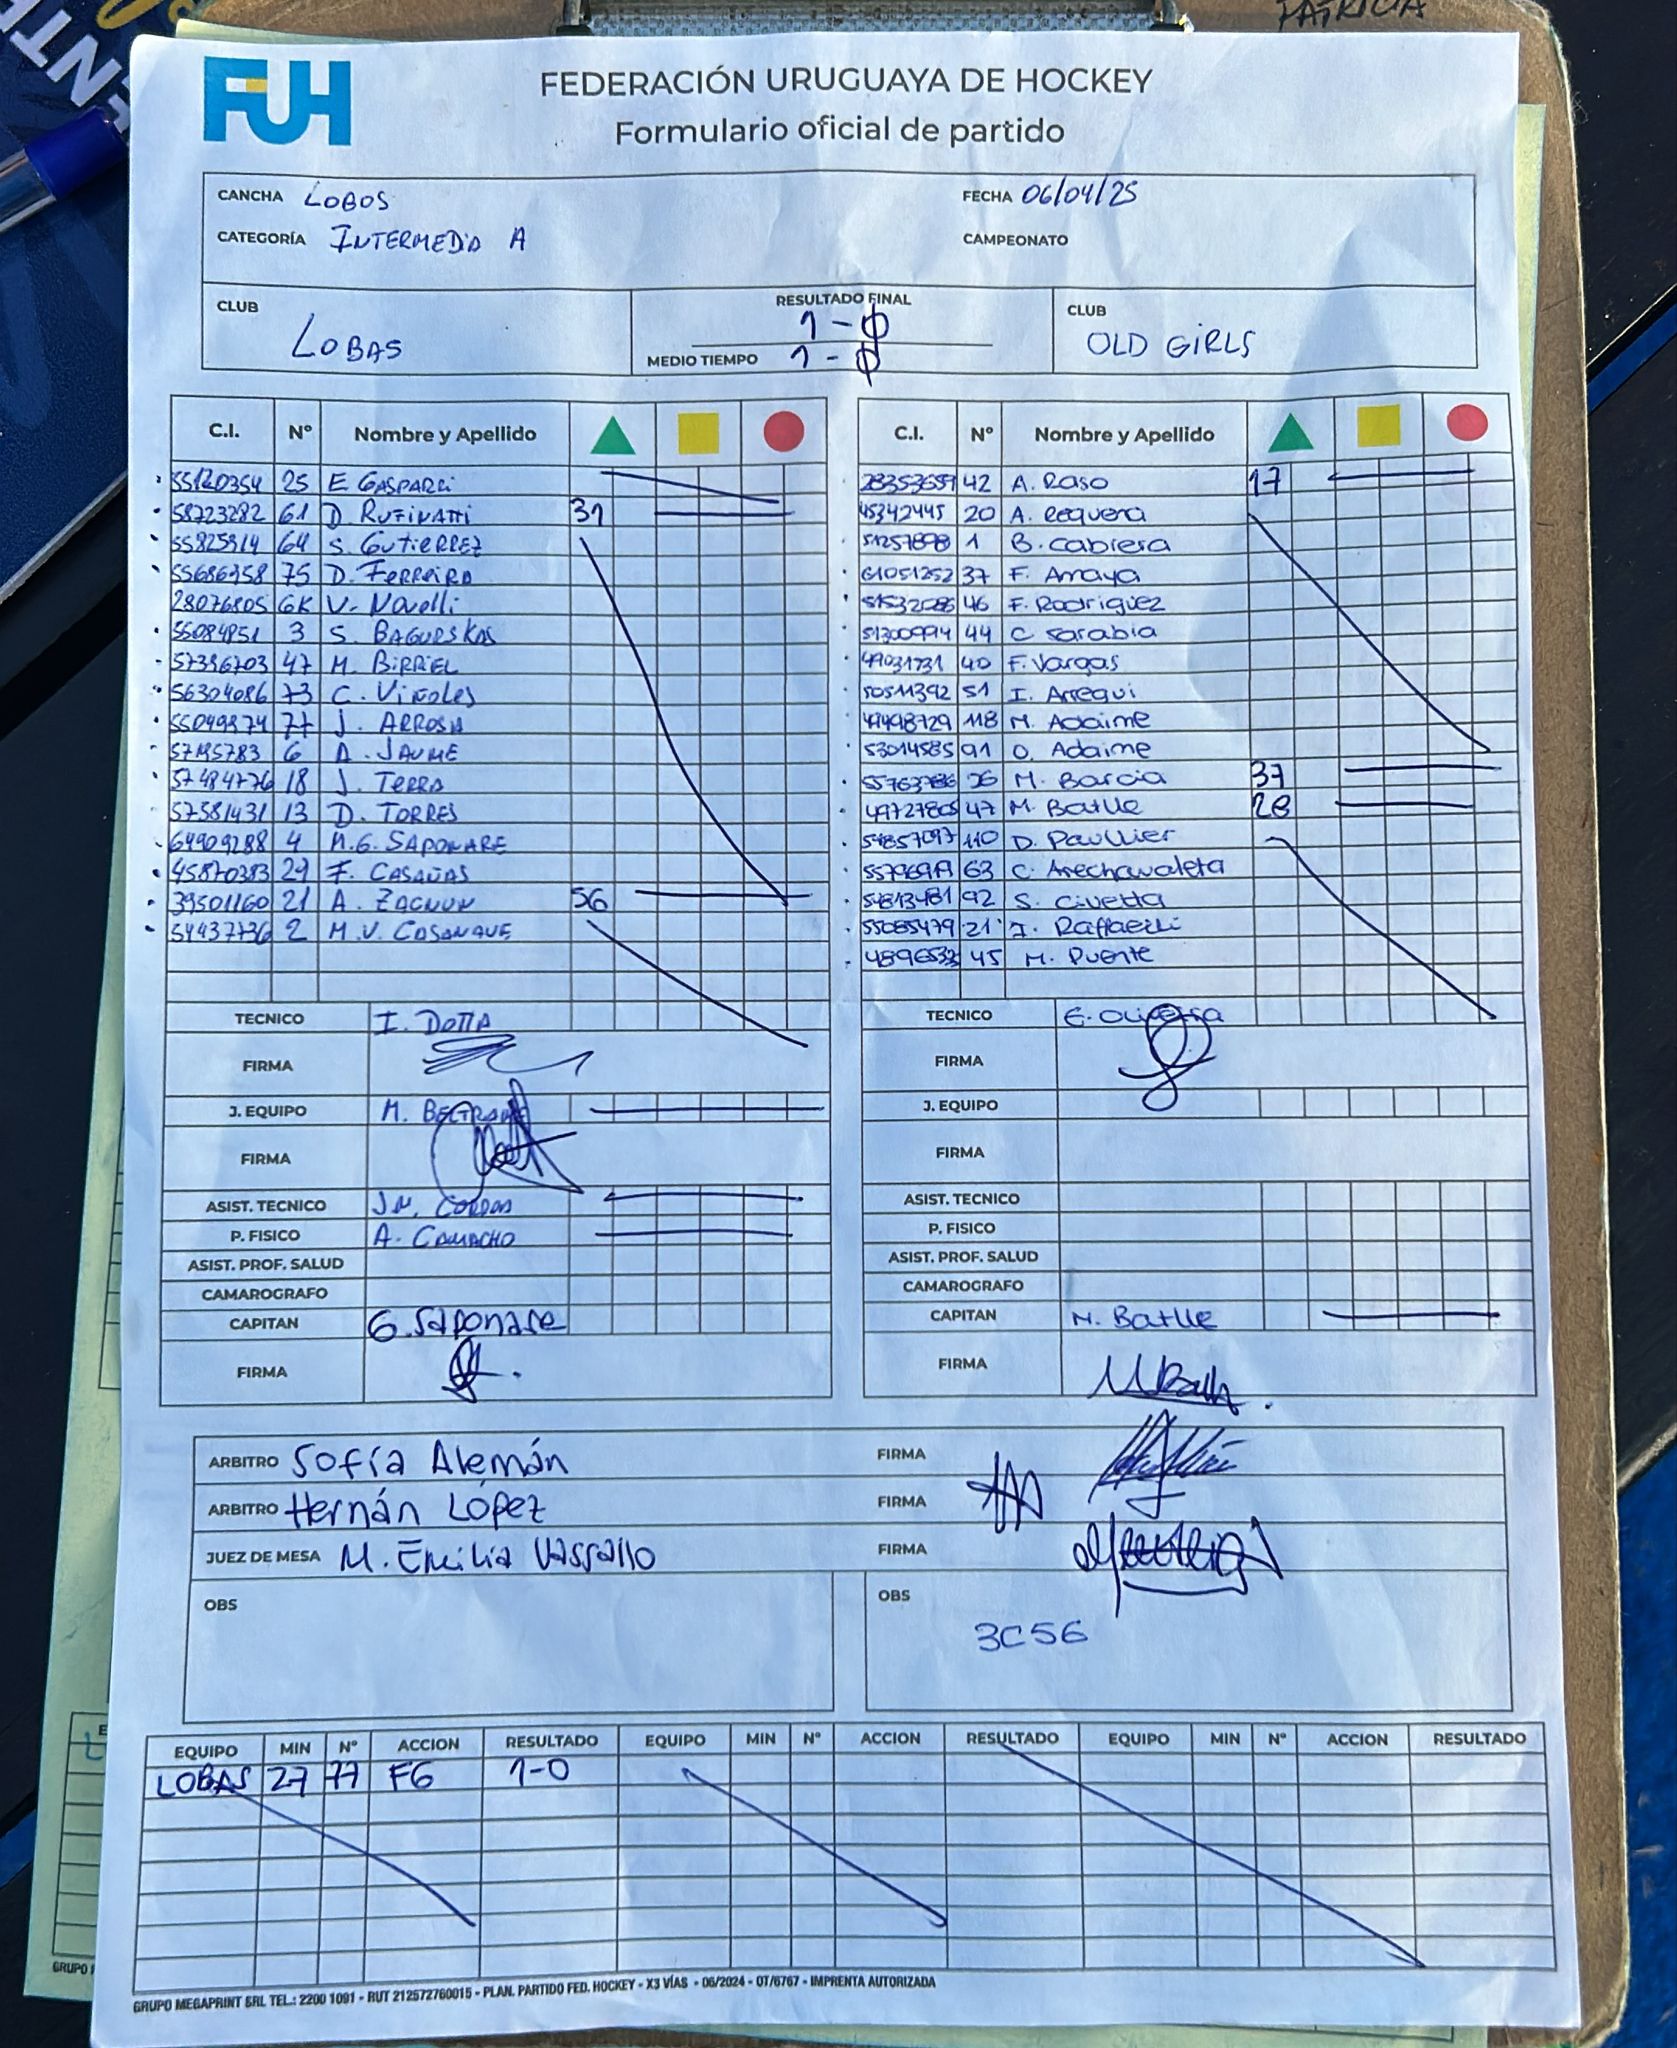 PATRICIA
FUH
FEDERACIÓN URUGUAYA DE HOCKEY
Formulario oficial de partido
CANCHA LOBOS FECHA 06/04/25
CATEGORÍA INTERMEDIA A CAMPEONATO
CLUB LOBAS
RESULTADO FINAL 1-0
MEDIO TIEMPO 1-0
CLUB OLD GIRLS
C.I. Nº Nombre y Apellido
55120354 25 E GASPARRI
58723282 61 D. RUFINATTI 31
55825914 64 S. GUTIERREZ
55686358 75 D. FERREIRA
28076805 GK V. Novelli
55084851 3 S. BAGURSKAS
57396703 47 M. BIRRIEL
56304086 73 C. VIÑOLES
55049874 77 J. ARROSA
57195783 6 A. JAUME
57484776 18 J. TERRA
57581431 13 D. TORRES
64909288 4 M.G. SAPONARE
45870383 29 F. CASAÑAS
39501160 21 A. ZAGNUN 56
54437736 2 M.V. CASANQUE
TECNICO I. DOTTA
FIRMA
J. EQUIPO M. BELTRAME
FIRMA
ASIST. TECNICO J.M.
P. FISICO A. CAMACHO
ASIST. PROF. SALUD
CAMAROGRAFO
CAPITAN G. Saponare
FIRMA
C.I. Nº Nombre y Apellido
42 A. Raso 17
45342445 20 A. Requera
1 B. Cabrera
61051252 37 F. Amaya
46 F. Rodriguez
51300994 44 C Sarabia
49031731 40 F. Vargas
50511392 51 I. Arregui
49498729 118 M. Adaime
53014585 91 O. Adaime
M. Barcia 37
49727805 47 M. Batlle 28
54857097 110 D. Paullier
63 C. Arechavaleta
92 S. Civetta
55085479 21 J. Raffaelli
45 M. Puente
TECNICO E. Olivera
FIRMA
J. EQUIPO
FIRMA
ASIST. TECNICO
P. FISICO
ASIST. PROF. SALUD
CAMAROGRAFO
CAPITAN M. Batlle
FIRMA
ARBITRO Sofía Alemán FIRMA
ARBITRO Hernán López FIRMA
JUEZ DE MESA M. Emilia Vassallo FIRMA
OBS
OBS
3C56
EQUIPO MIN Nº ACCION RESULTADO EQUIPO MIN Nº ACCION RESULTADO EQUIPO MIN Nº ACCION RESULTADO
LOBAS 27 77 FG 1-0
GRUPO MEGAPRINT SRL TEL.: 2200 1091 - RUT 212572760015 - PLAN. PARTIDO FED. HOCKEY - X3 VÍAS - 06/2024 - OT/6767 - IMPRENTA AUTORIZADA